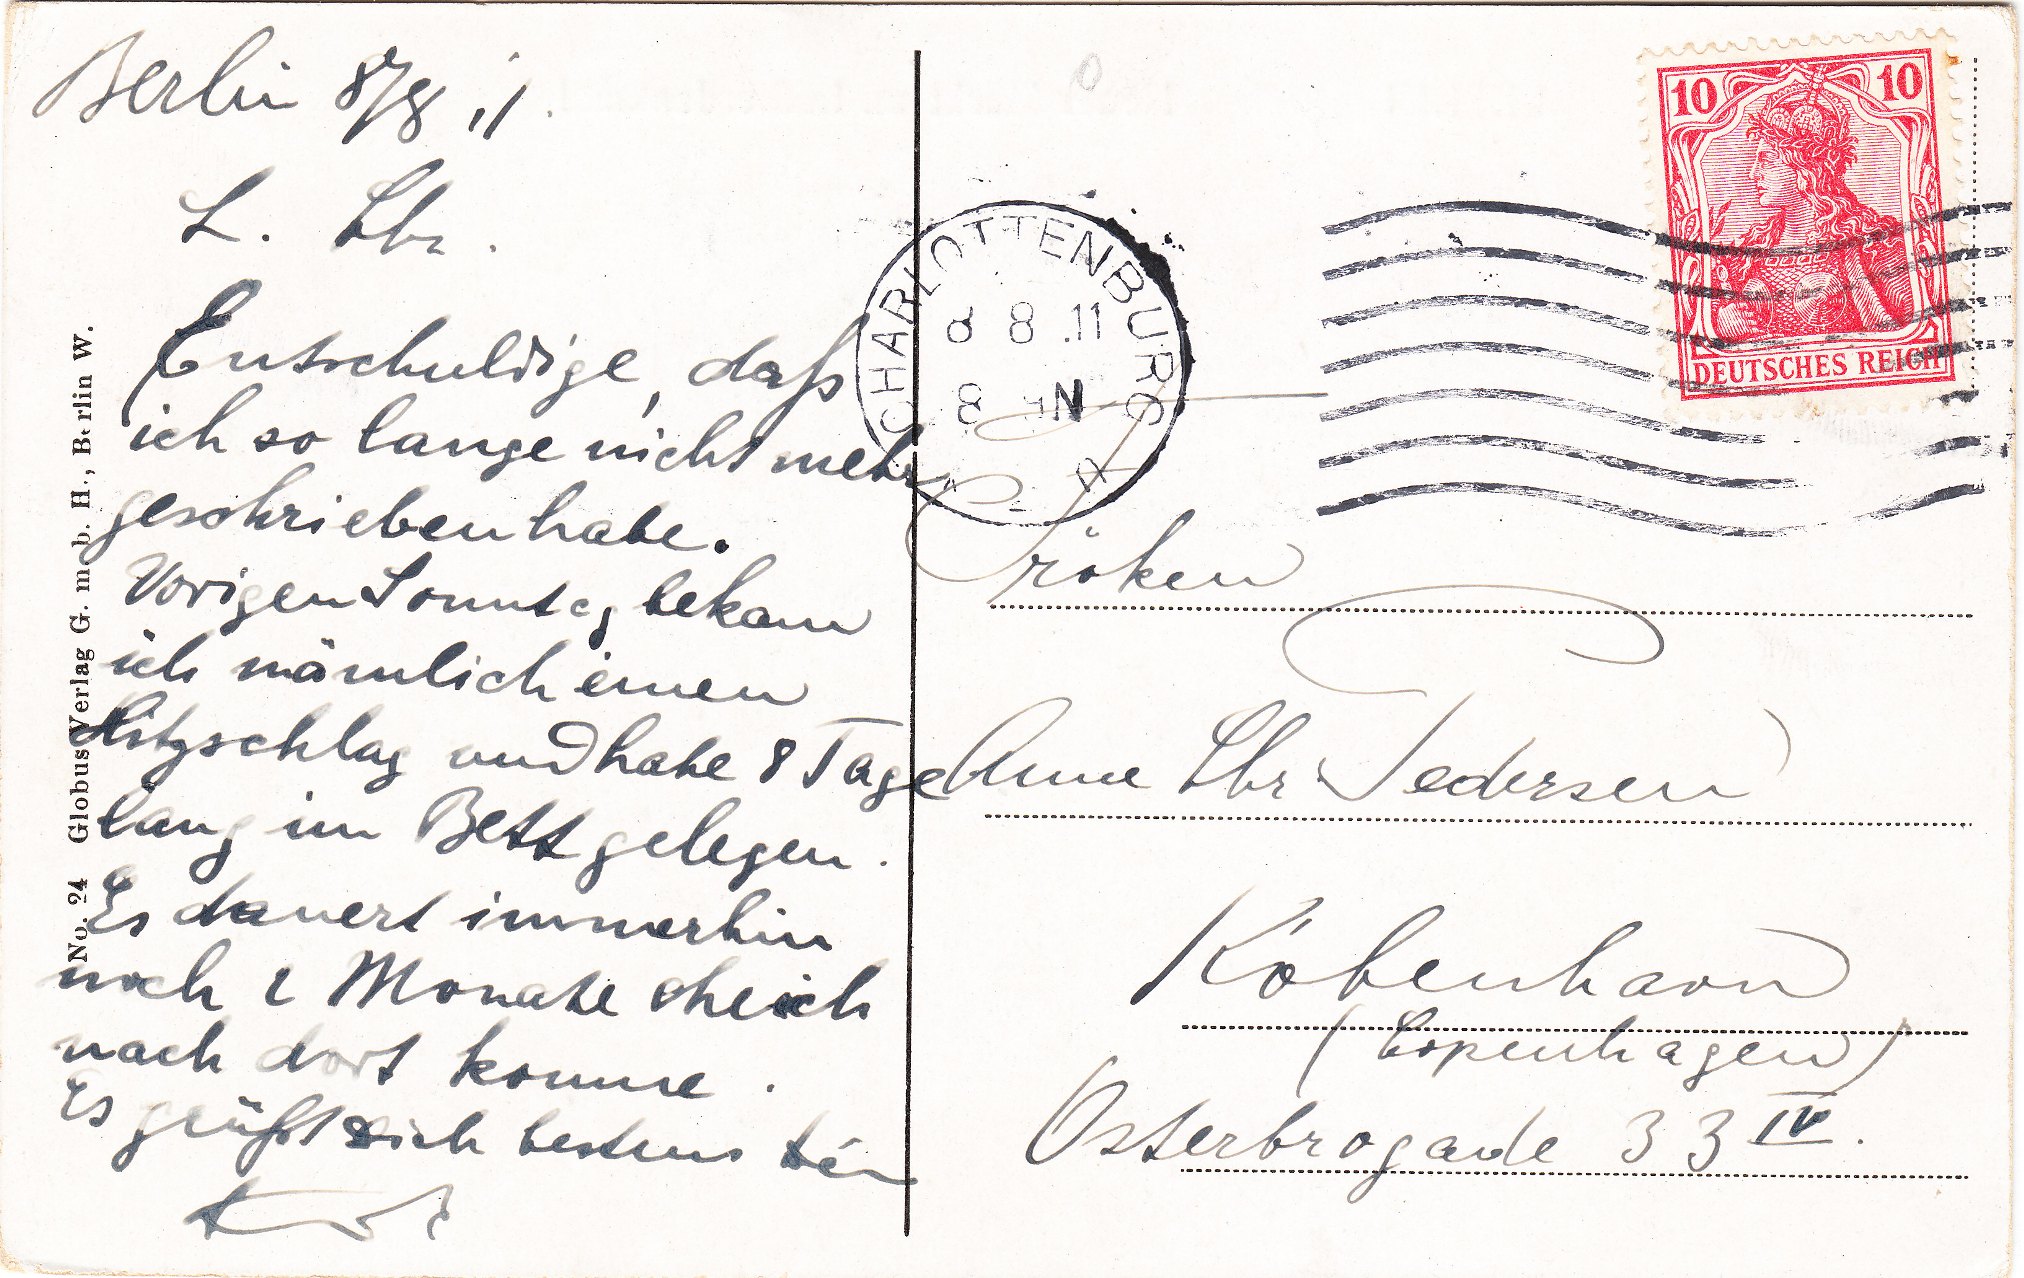 Berlin 8/8 11.
L. Chr.
Entschuldige, daß
ich so lange nicht mehr
geschrieben habe.
Vorigen Sonntag bekam
ich nämlich einen
Hitzschlag und habe 8 Tage
lang im Bett gelegen.
Es dauert immerhin
noch 2 Monate ehe ich
nach dort komme.
Es grüßt dich bestens
No. 24 Globus Verlag G. m. b. H., Berlin W.
CHARLOTTENBURG
8 8 .11
8 - 9 N
10 10
DEUTSCHES REICH
Fröken
Anne Chr Pedersen
Köbenhavn
(Copenhagen)
Osterbrogade 33 IV.